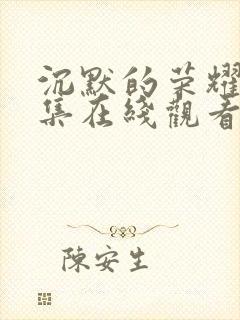 沉默的荣耀
集在綫觀看
陳安生